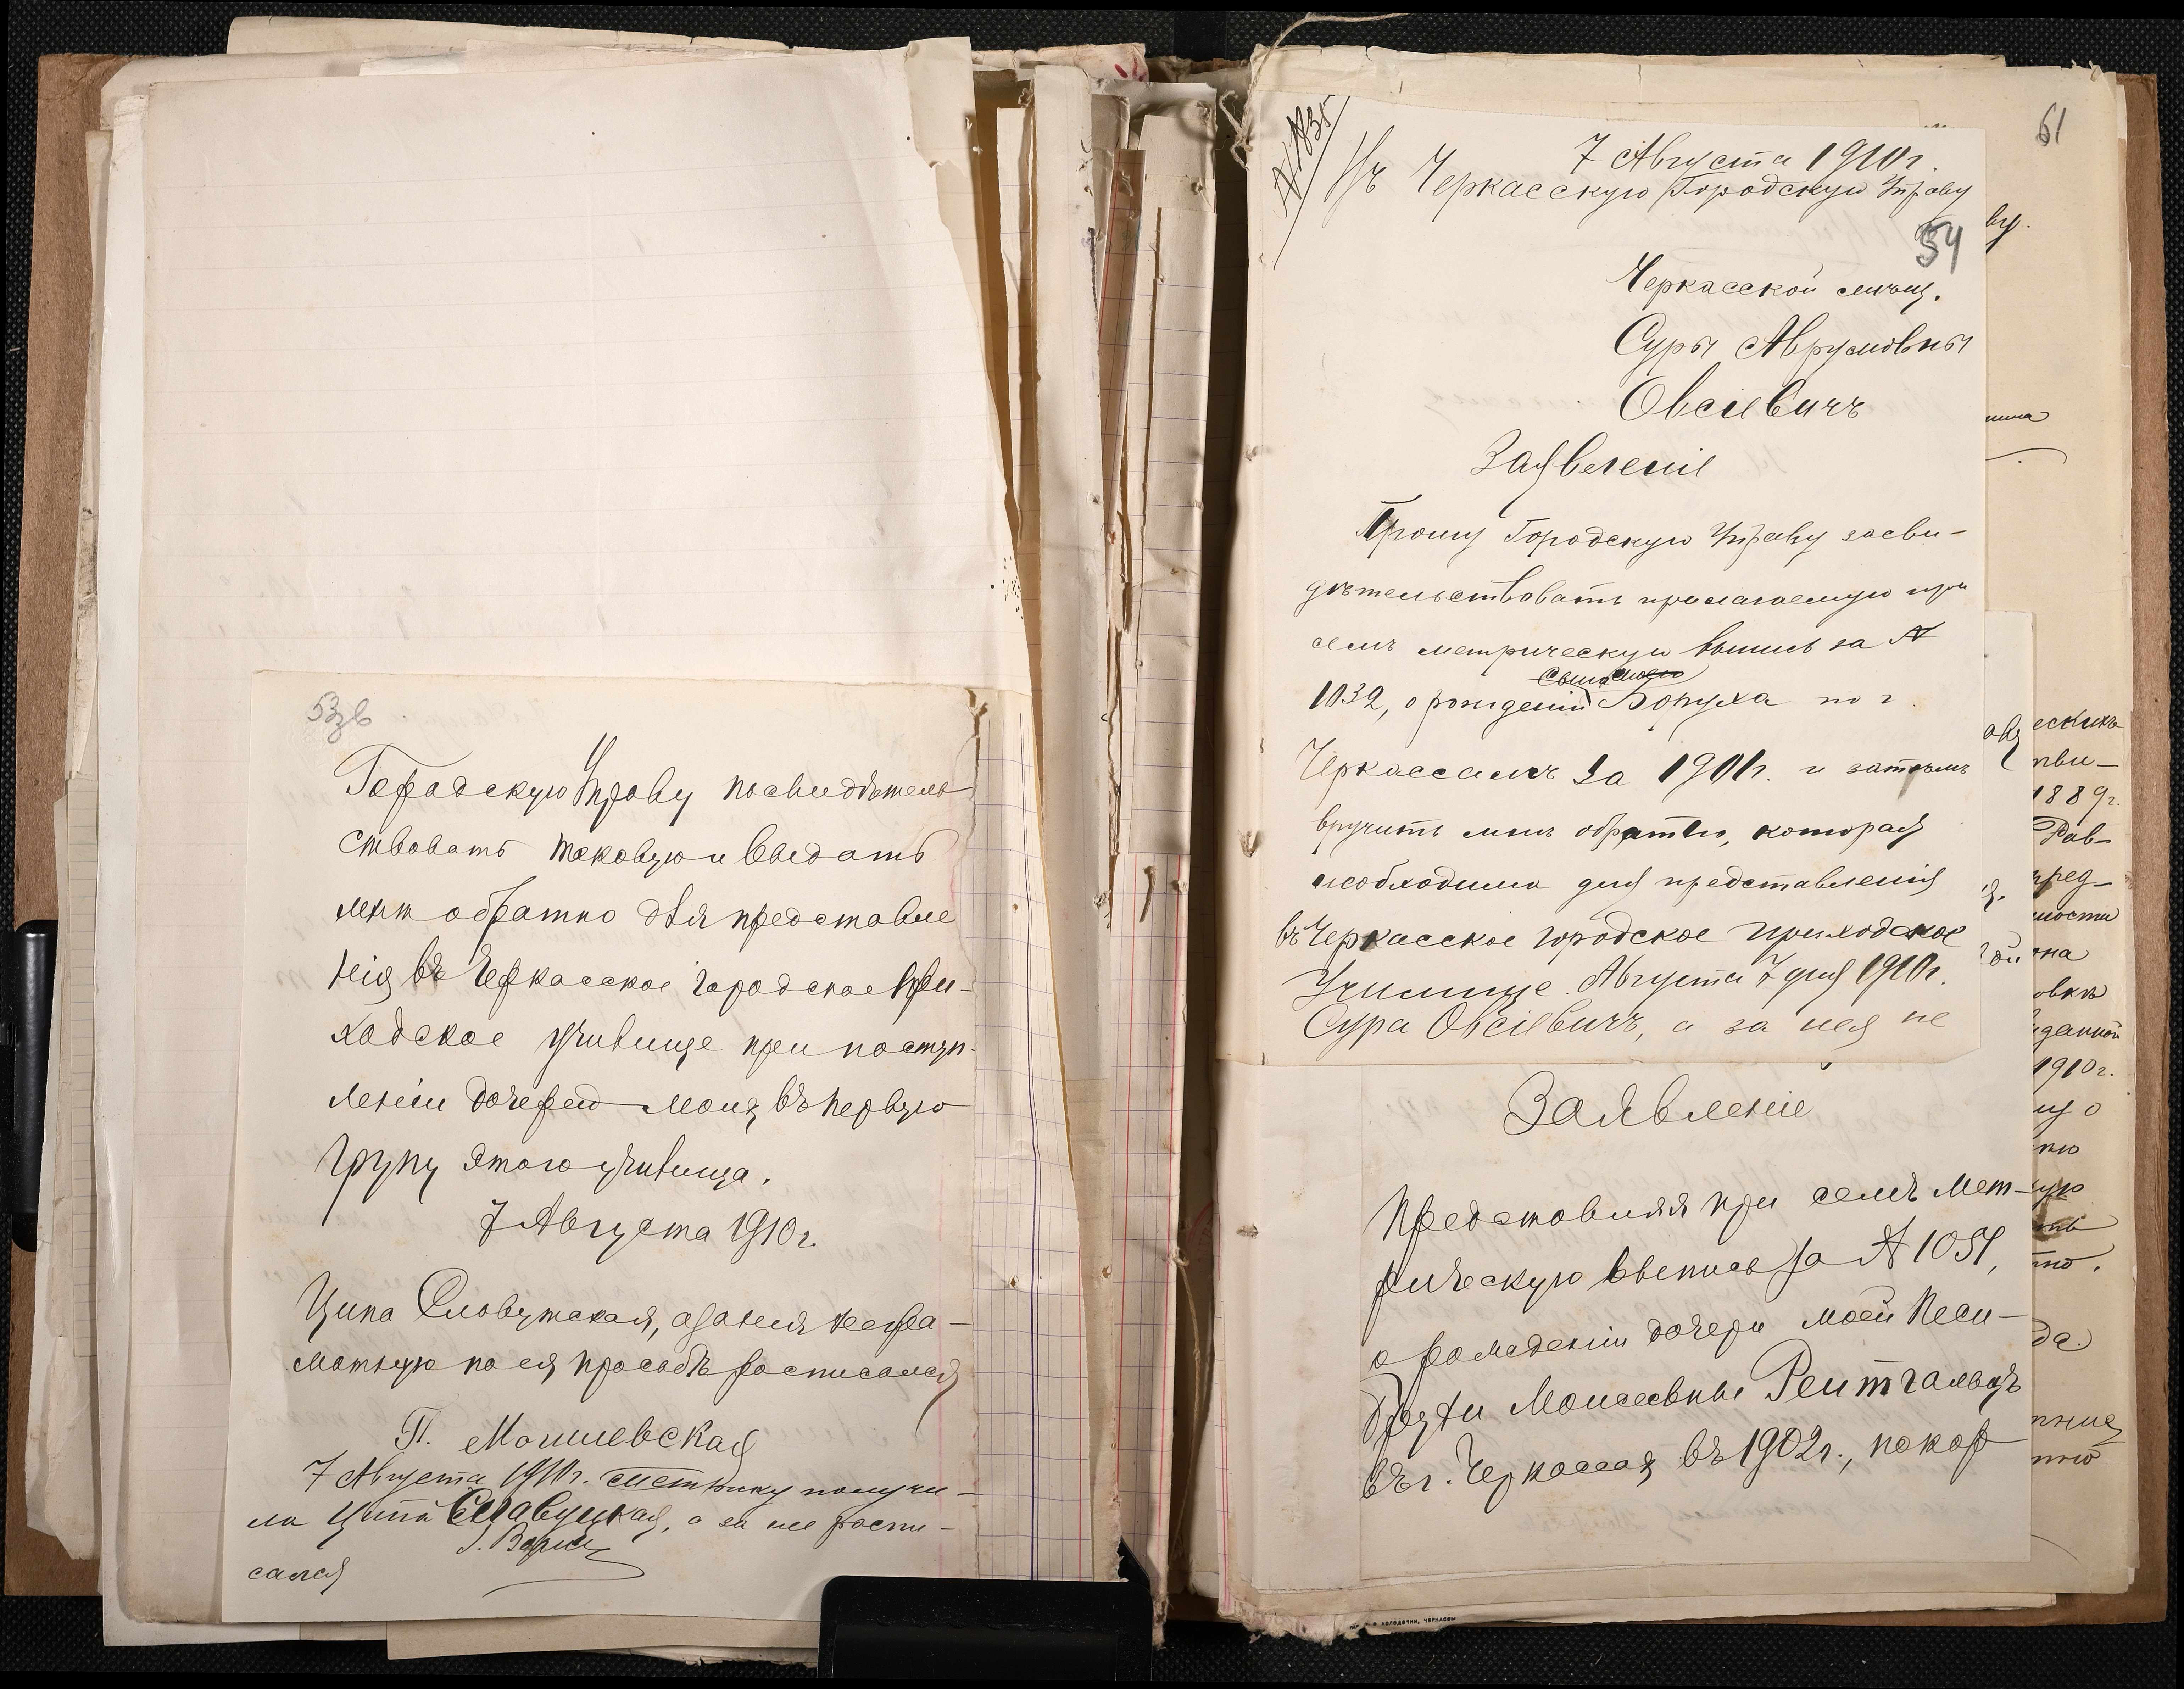 53зв
Городскую Управу посвидѣтель
ствовать таковую и выдать
мнѣ обратно для представле
нія въ Черкасское городское при-
ходское училище при поступ-
леніи дочерей моих въ первую
групу этого училища.
7 Августа 1910 г.
Ципа Словутская, а за нея негра-
мотную по ея просьбѣ росписался
П. Могилевская
7 Августа 1910 г. метрику получи-
ла Ципа Славуцкая, а за нее роспи-
сался
61
№ 1835
7 Августа 1910 г.
Въ Черкасскую Городскую Управу
54
Черкасской мѣщ.
Суры Аврумовны
Овсіевичъ
Заявленіе
Прошу Городскую Управу засви-
дѣтельствовать прилагаемую при
семъ метрическую выпись за №
1032, о рожденіи сына моего Боруха по г.
Черкассамъ за 1901 г. и затѣмъ
вручить мнѣ обратно, которая
необходима для представленія
въ Черкасское городское приходское
Училище. Августа 7 дня 1910 г.
Сура Овсіевичъ, а за нея не
Заявленіе
Представляя при семъ мет-
рическую выпись за № 1051,
о рожденіи дочери моей Песи-
Брухи Моисеевны Рейтгальцъ
въ г. Черкассах въ 1902 г., покор
ву.
ескихъ
тви-
1889 г.
Рав-
пред-
ности
на
овкѣ
1910 г.